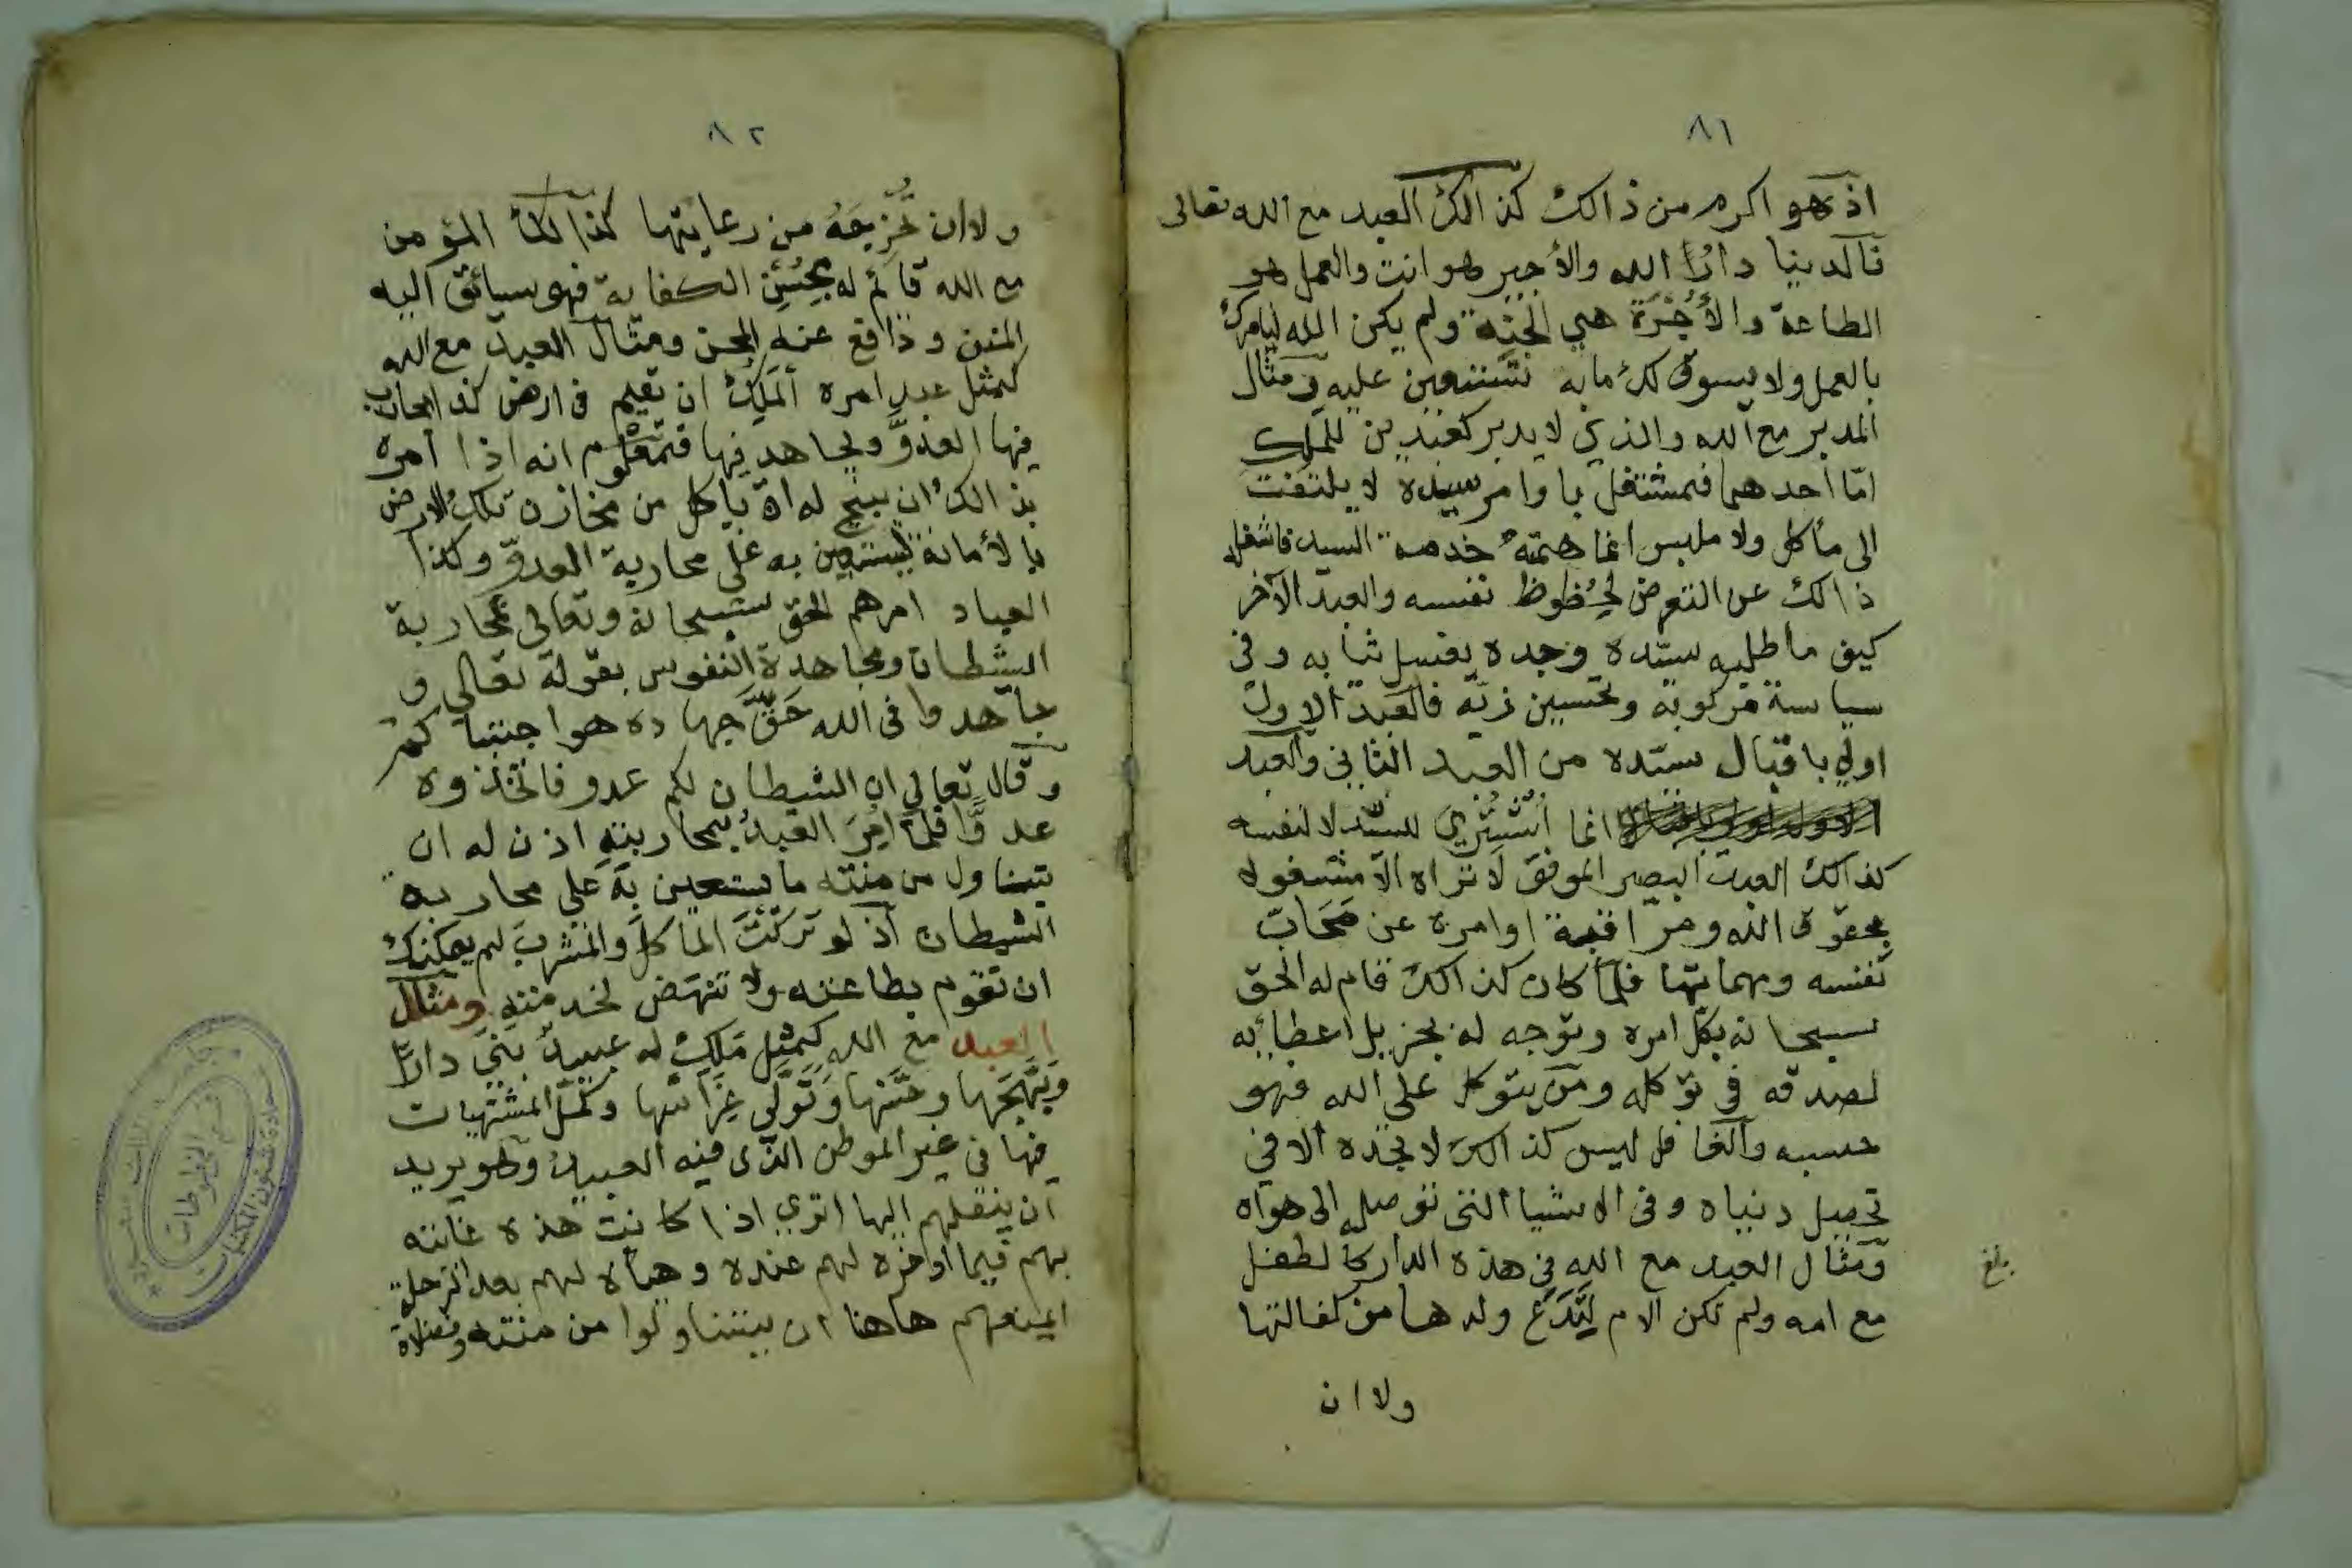 ٨١
اذ هو اكرم من ذالك كذالك العبد مع الله تعالى
فالدنيا دار الله والأجير هو انت والعمل هو
الطاعة والأُجْرَة هي الجنة ولم يكن الله ليامرك
بالعمل ولا يسوق لك ما به تستعين عليه ومثال
المدبر مع الله والذي لا يدبر كعبدين للملك
امّا أحدهما فمشتغل باوامر سيده لا يلتفت
الى مأكل ولا ملبس انما همته خدمة السيد فاشغله
ذالك عن التعرض لحُظوظ نفسه والعبد الآخر
كيف ما طلبه سيّده وجده يغسل ثيابه وفي
سياسة مركوبه وتحسين زيّه فالعبد الاول
اولي باقبال سيّده من العبد الثاني والعبد
انما اُشْتُرِيَ للسيّد لا لنفسه
كذالك العبد البصير الموفق لا تراه الا مشغولا
بحقوق الله ومراقبة اوامره عن مَحَابّ
نفسه ومهماتها فلمّا كان كذالك قام له الحق
سبحانه بكل امره وتوجه له بجزيل اعطائه
لصدقه في توكله ومن يتوكل على الله فهو
حسبه والغافل ليس كذالك لا تجده الا في
تحصيل دنياه وفي الاشيا التي توصله الى هواه
ومثال العبد مع الله في هذه الدار كالطفل
مع امه ولم تكن الام لِتَدَعَ ولدها من كفالتها
ولا ان
بلغ
٨٢
ولا ان تُخْرِجَهُ من رعايتها كذالك المؤمن
مع الله قائم له بحُسْنِ الكفاية فهو سائق اليه
المنن ودافع عنه المحن ومثال العبد مع الله
كمثل عبد امره المَلِكُ ان يقيم في ارض كذا يحارب
فيها العدوَّ ويجاهد فيها فمعلوم انه اذا امره
بذالك ان يبيح له ان ياكل من مخازن تلك الارض
بالأمانة ليستعين به على محاربة العدوّ وكذا
العباد امرهم الحق سبحانه وتعالى بمحاربة
الشيطان ومجاهدة النفوس بقوله تعالى و
جاهدوا في الله حَقَّ جهاده هو اجتباكم
وقال تعالي ان الشيطان لكم عدو فاتخذوه
عدوًّا فلمّا اُمِرَ العبدُ بمحاربته اذن له ان
يتناول من منته ما يستعين به علي محاربة
الشيطان اذ لو تَرَكْتَ الماكل والمشرب لم يمكنك
ان تقوم بطاعته ولا تنهض لخدمته ومثال
العبد مع الله كمثل مَلِكٍ له عبيدٌ بَنَى دارًا
وَبَهَّجَها وحسَّنها وتَوَلَّى غِرَاسَها وكَمَّل المشتهيات
فيها في غير الموطن الذي فيه العبيد وهو يريد
ان ينقلهم اليها اتري اذا كانت هذه
بهم فيما ادخره لهم عنده وهيأه لهم بعد الرحلة
ايمنعهم هاهنا ان يتناولوا من منته